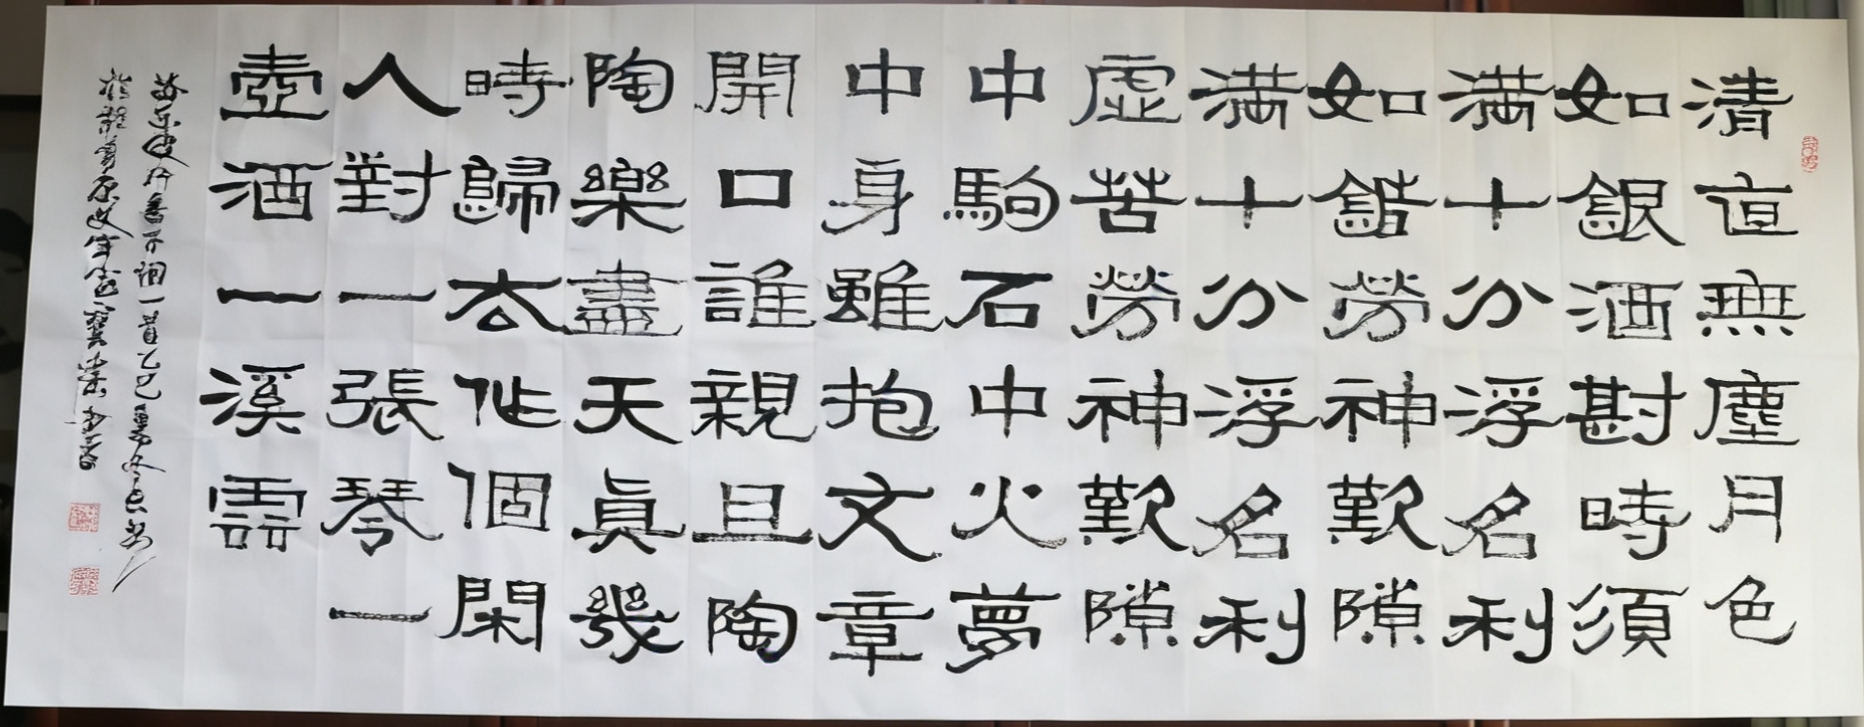 清亱無塵月色
如銀酒斟時須
滿十分浮名利
如勞神歎隙
滿十分浮名利
虛苦勞神歎隙
中駒石中火夢
中身雖抱文章
開口誰親且陶
陶樂盡天真幾
時歸去作個閑
人對一張琴一
壺酒一溪雲
蘇東坡行香子詞一首乙巳